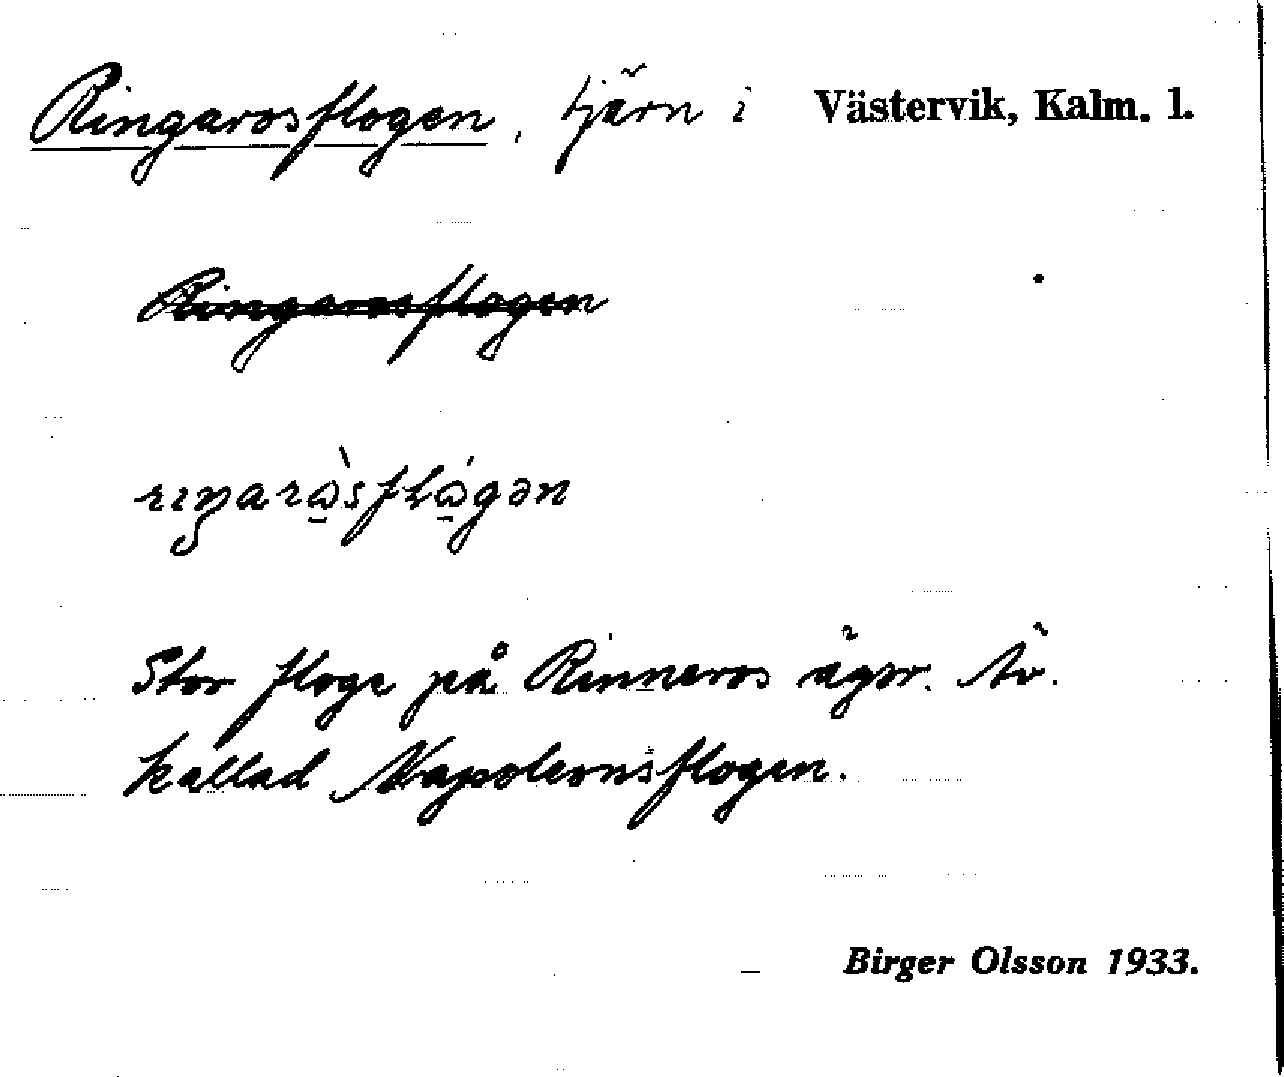 Ringarosflogen, tjärn i Västervik, Kalm. l.
Ringarosflogen
Stor floge på Rinneros ägor. Äv.
kallad Napoleonsflogen.
Birger Olsson 1933.